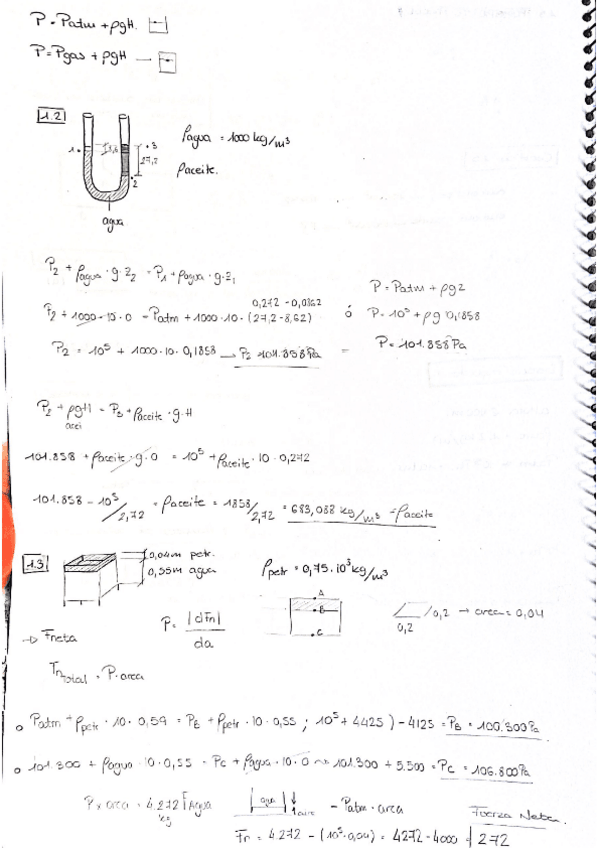 P = Patm + ρgH.
P = Pgas + ρgH
1.2
ρagua = 1000 kg/m³
1 •
• 3
27,2
ρaceite.
2
agua
P₂ + ρagua · g · z₂ = P₁ + ρagua · g · z₁
P = Patm + ρgz
0,272 - 0,0862
P₂ + 1000 · 10 · 0 = Patm + 1000 · 10 · (27,2 - 8,62)
ó P = 10⁵ + ρg 0,1858
P₂ = 10⁵ + 1000 · 10 · 0,1858 → P₂ 101.858 Pa =
P = 101.858 Pa
P₂ + ρgH = P₃ + ρaceite · g · H
acei
101.858 + ρaceite · g · 0 = 10⁵ + ρaceite · 10 · 0,272
101.858 - 10⁵ / 2,72 = ρaceite = 1858/2,72 = 683,088 kg/m³ = ρaceite
1.3
0,04m petr.
0,55m agua
ρpetr = 0,75 · 10³ kg/m³
A
B
C
0,2 → area = 0,04
0,2
→ Fneta
P = |dFn| / da
total = P · area
o Patm + ρpetr · 10 · 0,59 = PB + ρpetr · 10 · 0,55 ; 10⁵ + 4425 ) - 4125 = PB = 100.300 Pa
o 101.300 + ρagua · 10 · 0,55 = Pc + ρagua · 10 · 0 ~ 101.300 + 5.500 = Pc = 106.800 Pa
P x area = 4.272 Fagua
kg
agua
aire
- Patm · area
Fuerza Neta.
Fn = 4.272 - (10⁵ · 0,04) = 4272 - 4000 = 272